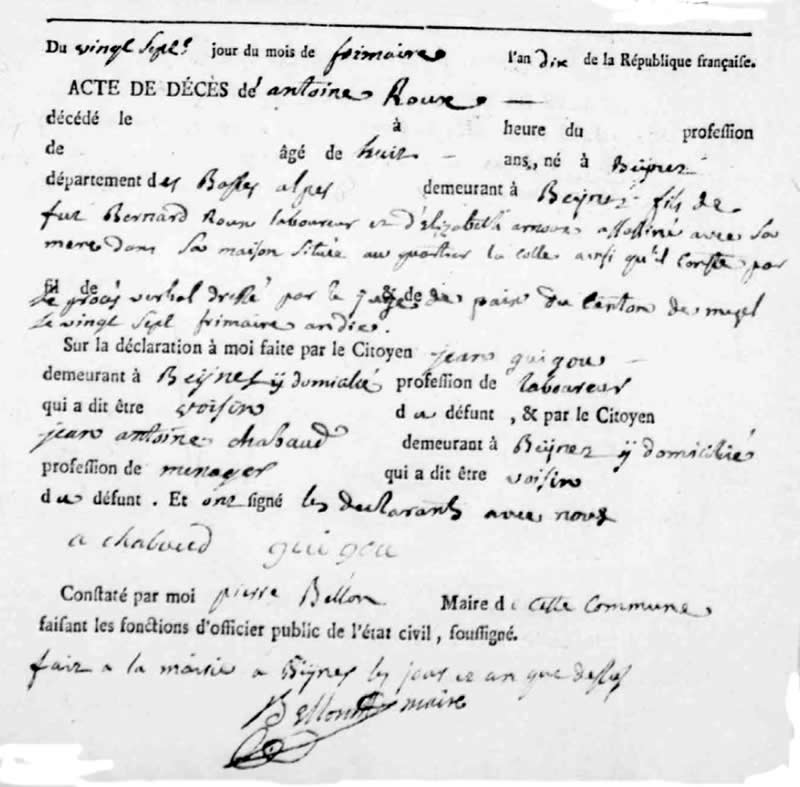 Du vingt sept.e jour du mois de frimaire l'an dix de la République françaiſe.
ACTE DE DÉCÈS de antoine Roux
décédé le à heure du profeſſion
de âgé de huit ans, né à Beÿnes
département des Baſſes alpes demeurant à Beÿnes fils de
fut Bernard Roux laboureur et d'élizabeth arnoux aſſaſſiné avec Sa
mere dans Sa maiſon ſituée au quartier la colle ainſi qu'il Conſte par
fil de & de
Le procés verbal dreſſé par le juge de paix du Canton de mezel
Le vingt Sept frimaire an dix.
Sur la déclaration à moi faite par le Citoyen jean guigou
demeurant à Beÿnes ÿ domicilié profeſſion de laboureur
qui a dit être voiſin du défunt, & par le Citoyen
jean antoine chabaud demeurant à Beÿnes ÿ domicilié
profeſſion de menager qui a dit être voiſin
du défunt. Et ont ſigné les declarants avec nous
a chaboud guigou
Conſtaté par moi pierre Bellon Maire de cette Commune
faiſant les fonctions d'officier public de l'état civil, ſouſſigné.
fait a la mairie a Beÿnes les jour et an que deſſus
Bellon maire